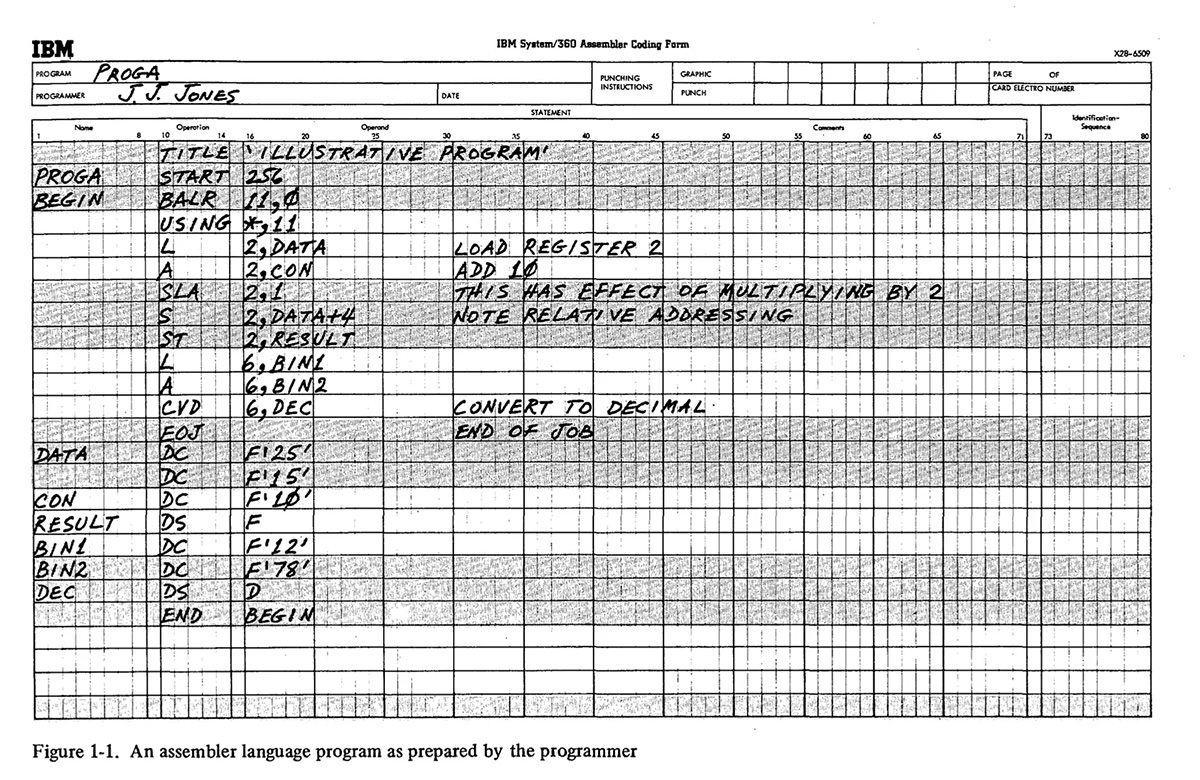 IBM
IBM System/360 Assembler Coding Form
X28-6509
PROGRAM PROGA PUNCHING INSTRUCTIONS GRAPHIC PAGE OF
PROGRAMMER J. J. JONES DATE PUNCH CARD ELECTRO NUMBER
STATEMENT
Name Operation Operand Comments Identification-Sequence
1 8 10 14 16 20 25 30 35 40 45 50 55 60 65 71 73 80
TITLE 'ILLUSTRATIVE PROGRAM'
PROGA START 256
BEGIN BALR 11,0
USING *,11
L 2,DATA LOAD REGISTER 2
A 2,CON ADD 10
SLA 2,1 THIS HAS EFFECT OF MULTIPLYING BY 2
S 2,DATA+4 NOTE RELATIVE ADDRESSING
ST 2,RESULT
L 6,BIN1
A 6,BIN2
CVD 6,DEC CONVERT TO DECIMAL
EOJ END OF JOB
DATA DC F'25'
DC F'15'
CON DC F'10'
RESULT DS F
BIN1 DC F'12'
BIN2 DC F'78'
DEC DS D
END BEGIN
Figure 1-1. An assembler language program as prepared by the programmer